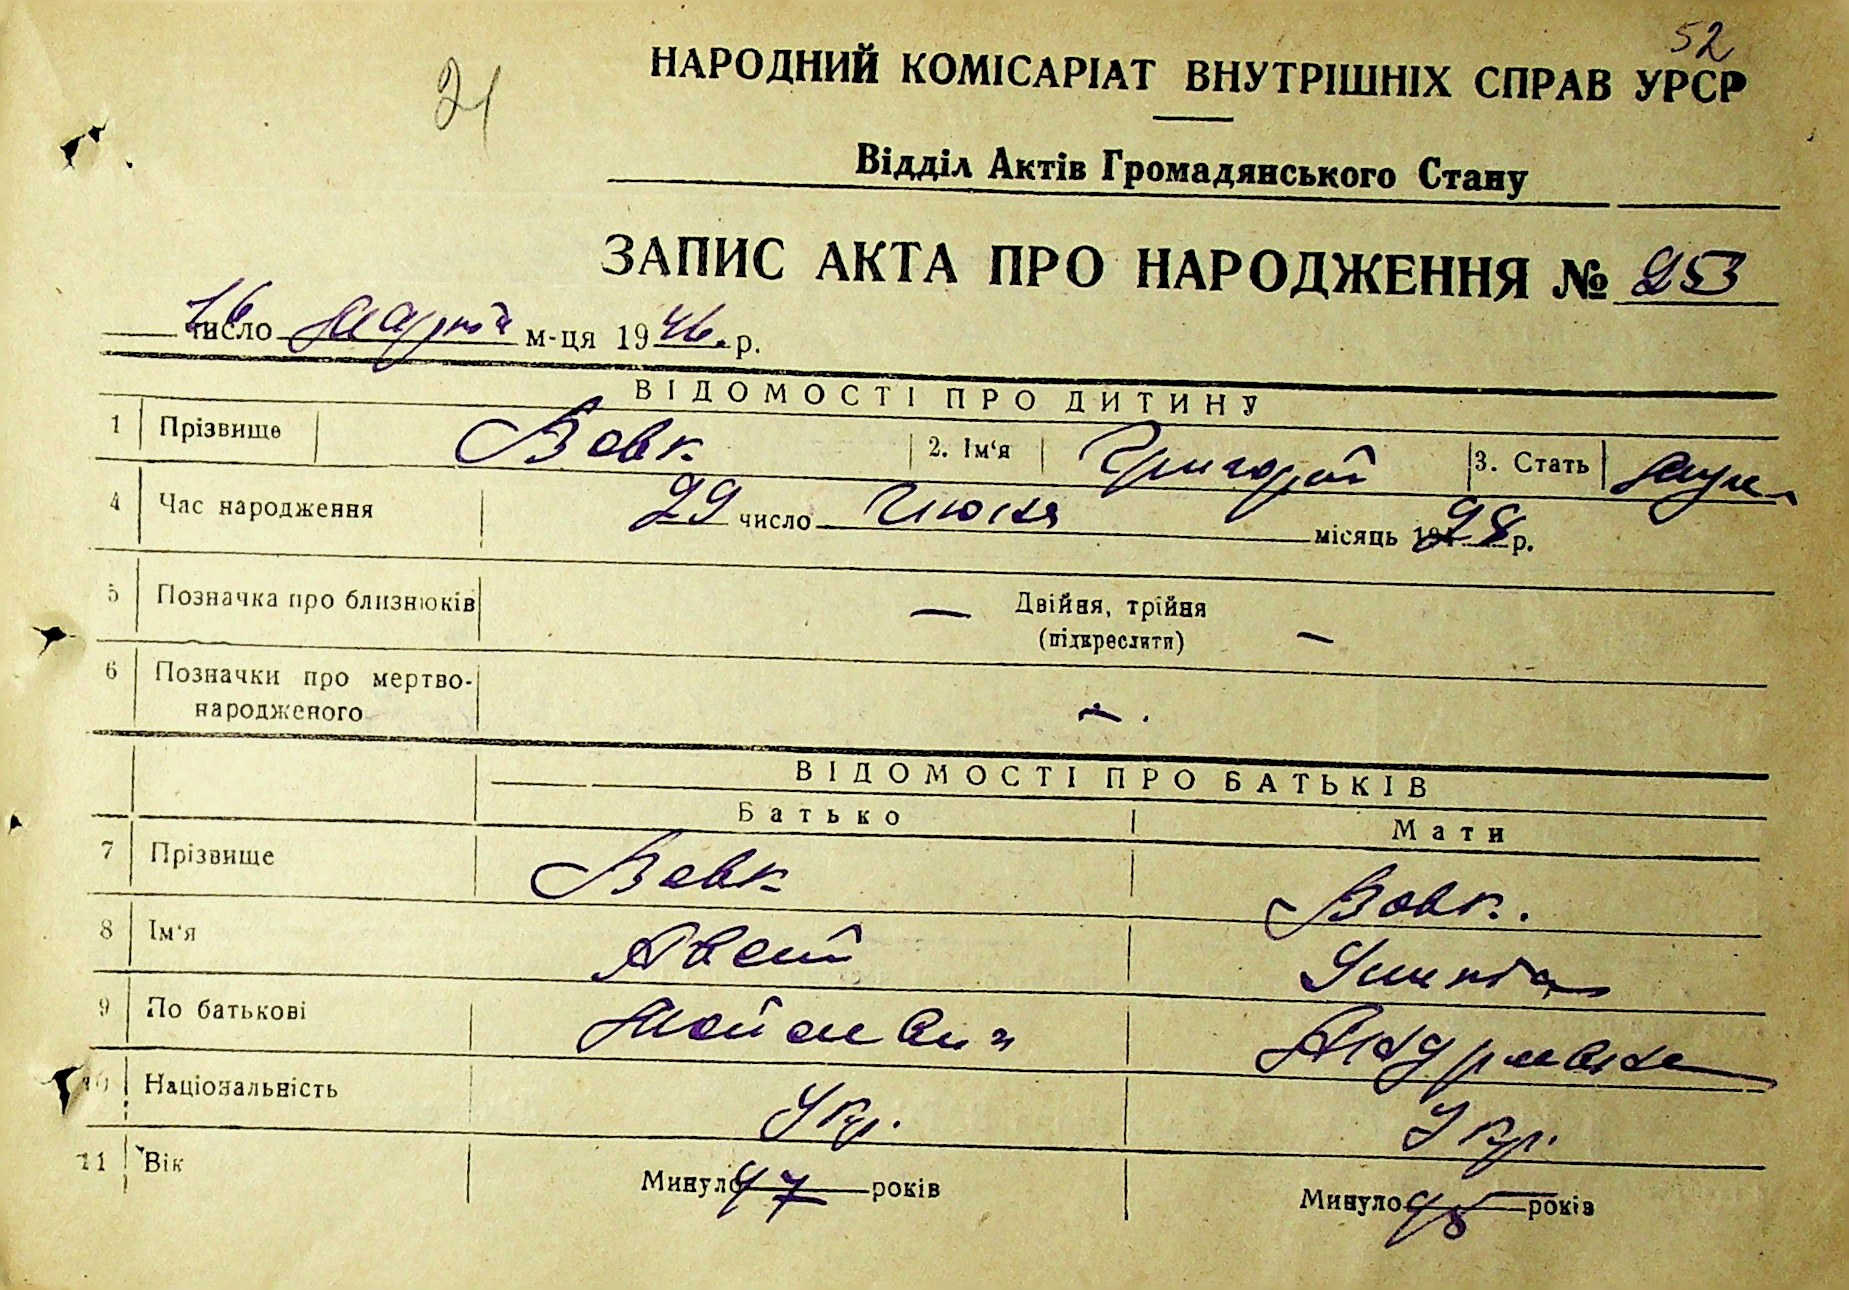 52
21
НАРОДНИЙ КОМІСАРІАТ ВНУТРІШНІХ СПРАВ УРСР
Відділ Актів Громадянського Стану
ЗАПИС АКТА ПРО НАРОДЖЕННЯ № 253
16 число марта м-ця 1946 р.
ВІДОМОСТІ ПРО ДИТИНУ
1 Прізвище Вовк 2. Ім'я Григорій 3. Стать муж
4 Час народження 29 число Июня місяць 1928 р.
5 Позначка про близнюків — Двійня, трійня —
(підкреслити)
6 Позначки про мертво-
народженого —
ВІДОМОСТІ ПРО БАТЬКІВ
Батько Мати
7 Прізвище Вовк Вовк.
8 Ім'я
9 По батькові
10 Національність Укр. Укр.
11 Вік Минуло 47 років Минуло 45 років